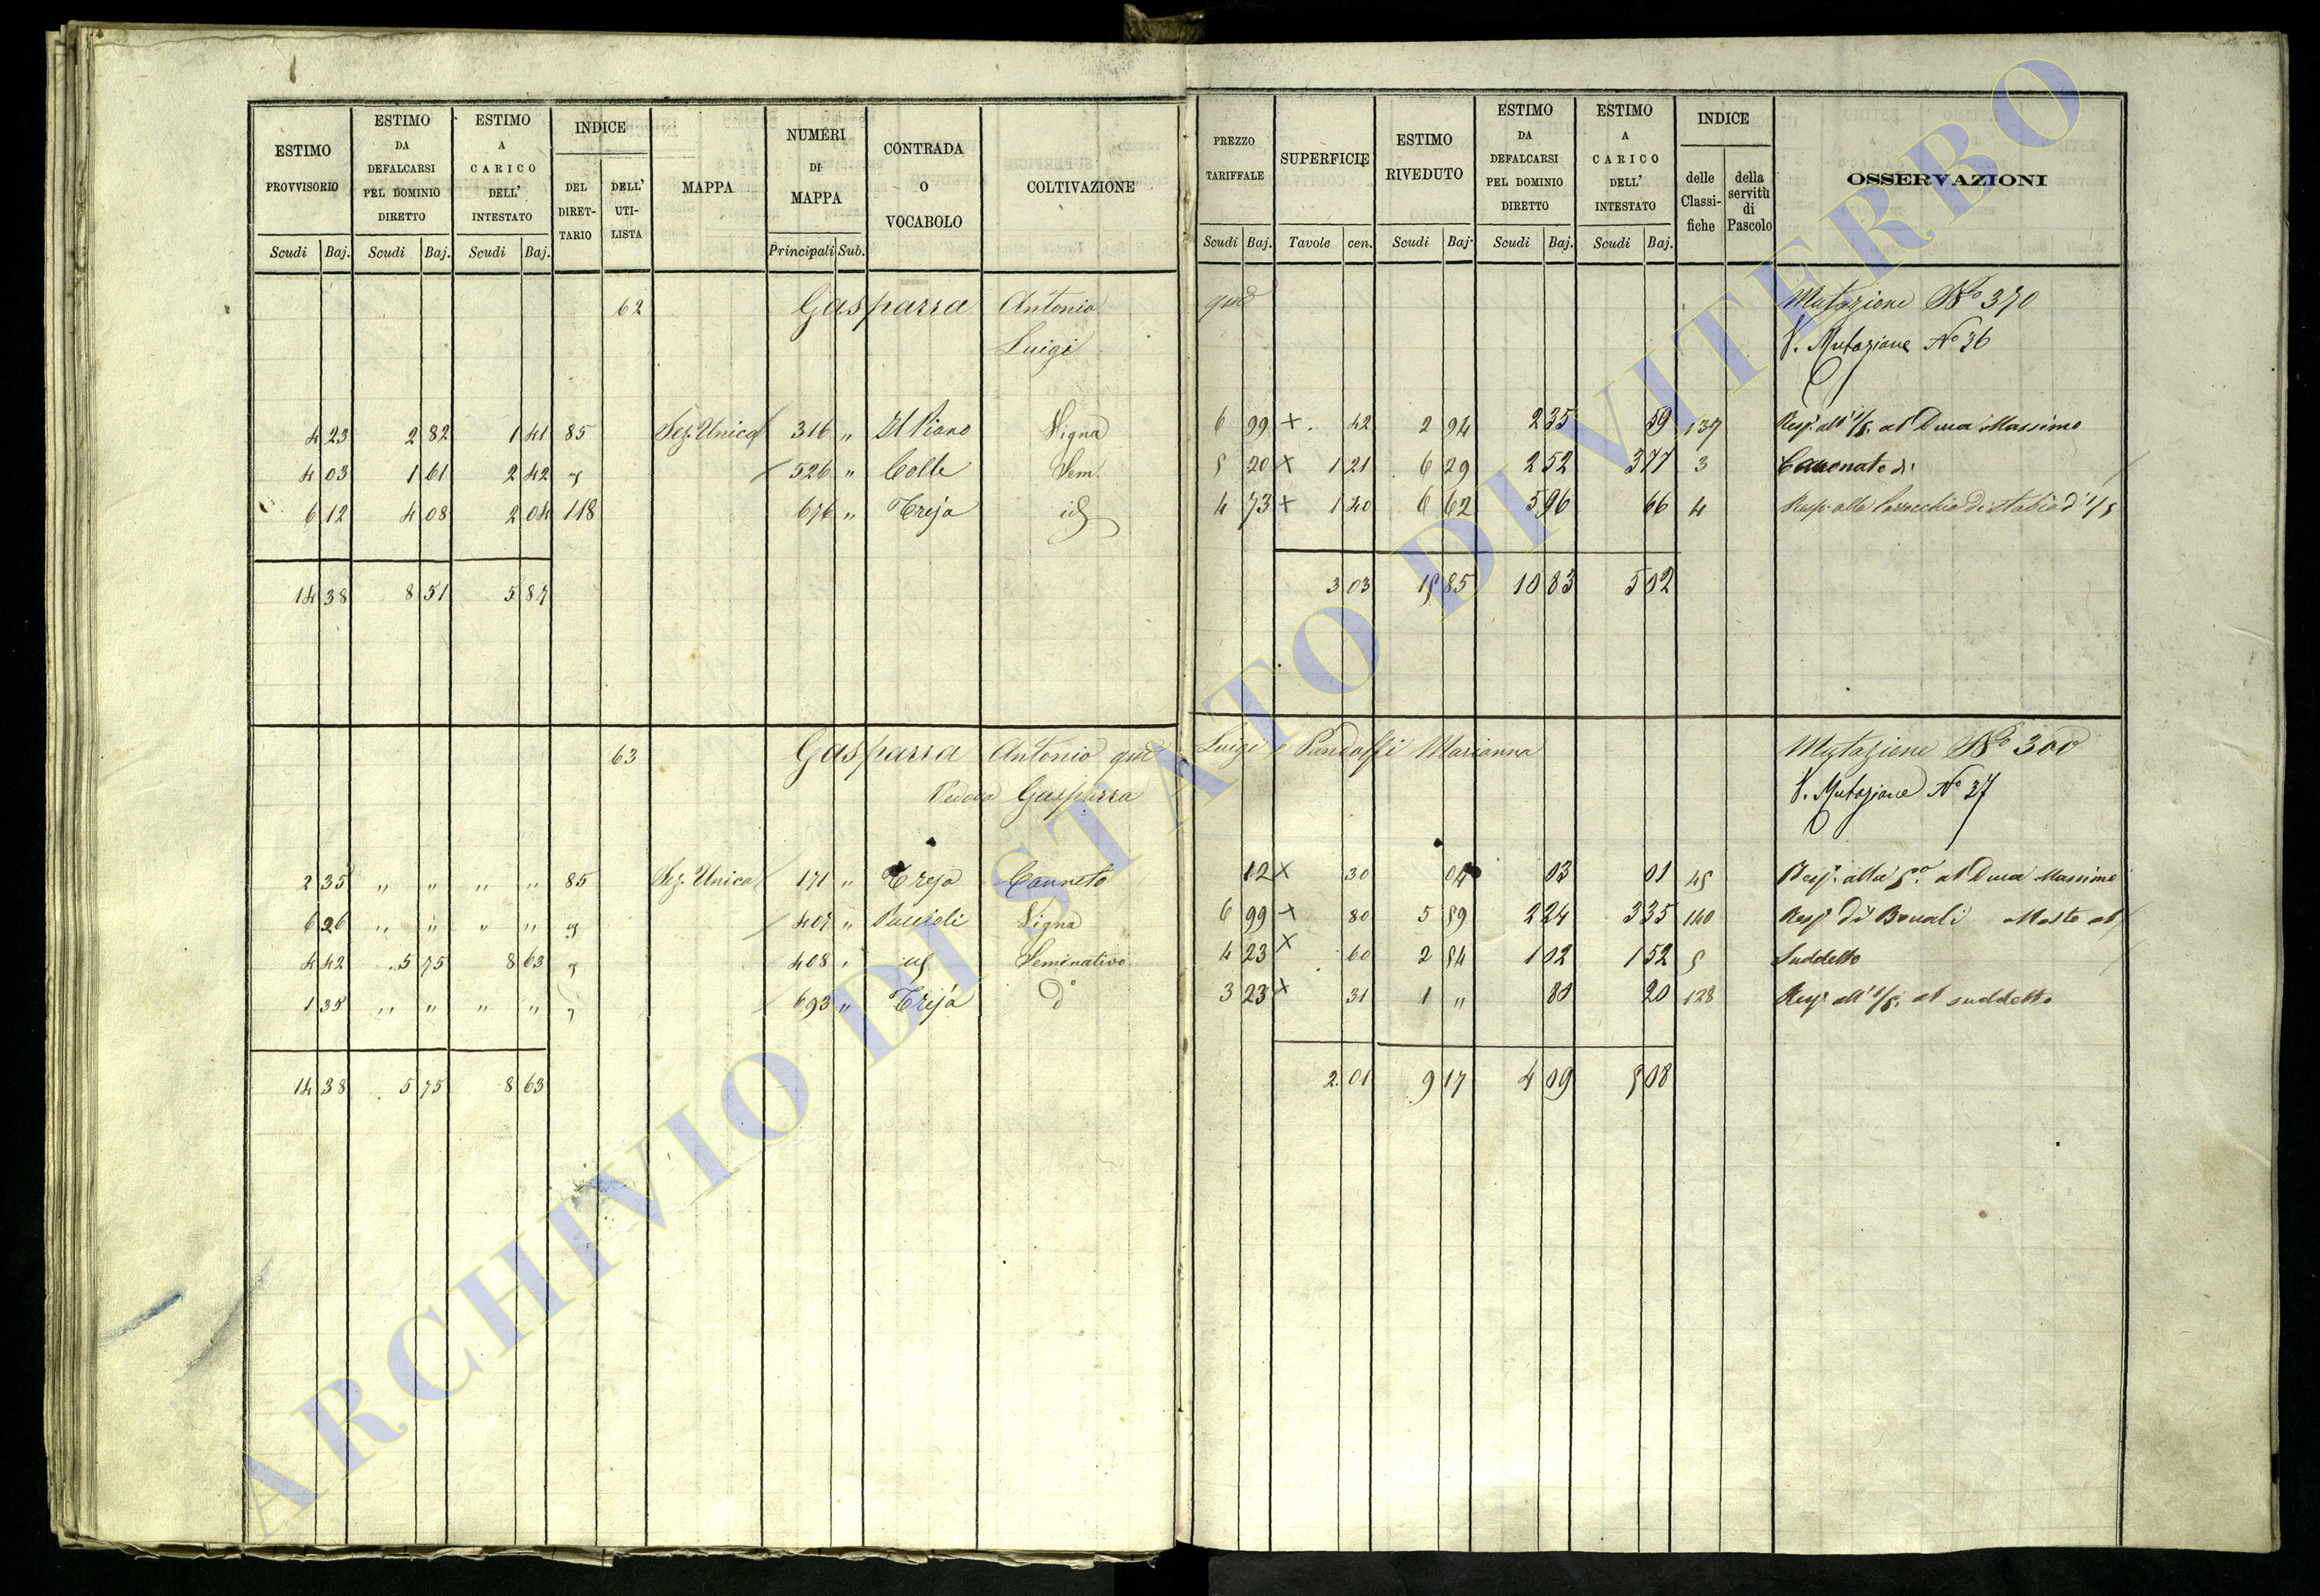 ESTIMO PROVVISORIO ESTIMO DA DEFALCARSI PEL DOMINIO DIRETTO ESTIMO A CARICO DELL' INTESTATO INDICE DEL DIRETTARIO DELL' UTILISTA MAPPA NUMERI DI MAPPA CONTRADA O VOCABOLO COLTIVAZIONE PREZZO TARIFFALE SUPERFICIE ESTIMO RIVEDUTO ESTIMO DA DEFALCARSI PEL DOMINIO DIRETTO ESTIMO A CARICO DELL' INTESTATO INDICE delle Classifiche della servitù di Pascolo OSSERVAZIONI
Scudi Baj. Scudi Baj. Scudi Baj. Principali Sub. Scudi Baj. Tavole cen. Scudi Baj. Scudi Baj. Scudi Baj.
62 Gasparra Antonio qm Mutazione No 370
Luigi V. Mutazione No 36
4 23 2 82 1 41 85 Sez. Unica 316 " Il Piano Vigna 6 99 x 42 2 94 2 35 59 137 Resp. all' 1/5. al Duca Massimo
4 03 1 61 2 42 526 " Colle Sem. 5 20 x 1 21 6 29 2 52 3 77 3
6 12 4 08 2 04 118 676 " Treja id 4 73 x 1 40 6 62 5 96 66 4
14 38 8 51 5 87 3 03 15 85 10 83 5 02
63 Gasparra Antonio qm Luigi e Pandolfi Marianna Mutazione No 300
Vedova Gasparra V. Mutazione No 37
2 35 " " " " 85 Sez. Unica 171 " Treja Canneto 12 x 30 04 03 01 45 Resp. alla 5a. al Duca Massimo
6 26 " " " " 407 " Vigna 6 99 x 80 5 59 2 24 3 35 140 Resp. di Mosto al
4 42 5 75 8 63 408 " Seminativo 4 23 x 60 2 54 1 02 1 52 5 Suddetto
1 35 " " " " 693 " Treja do 3 23 x 31 1 " 80 20 128 Resp. all' 1/5. al suddetto
14 38 5 75 8 63 2 01 9 17 4 09 5 08
ARCHIVIO DI STATO DI VITERBO